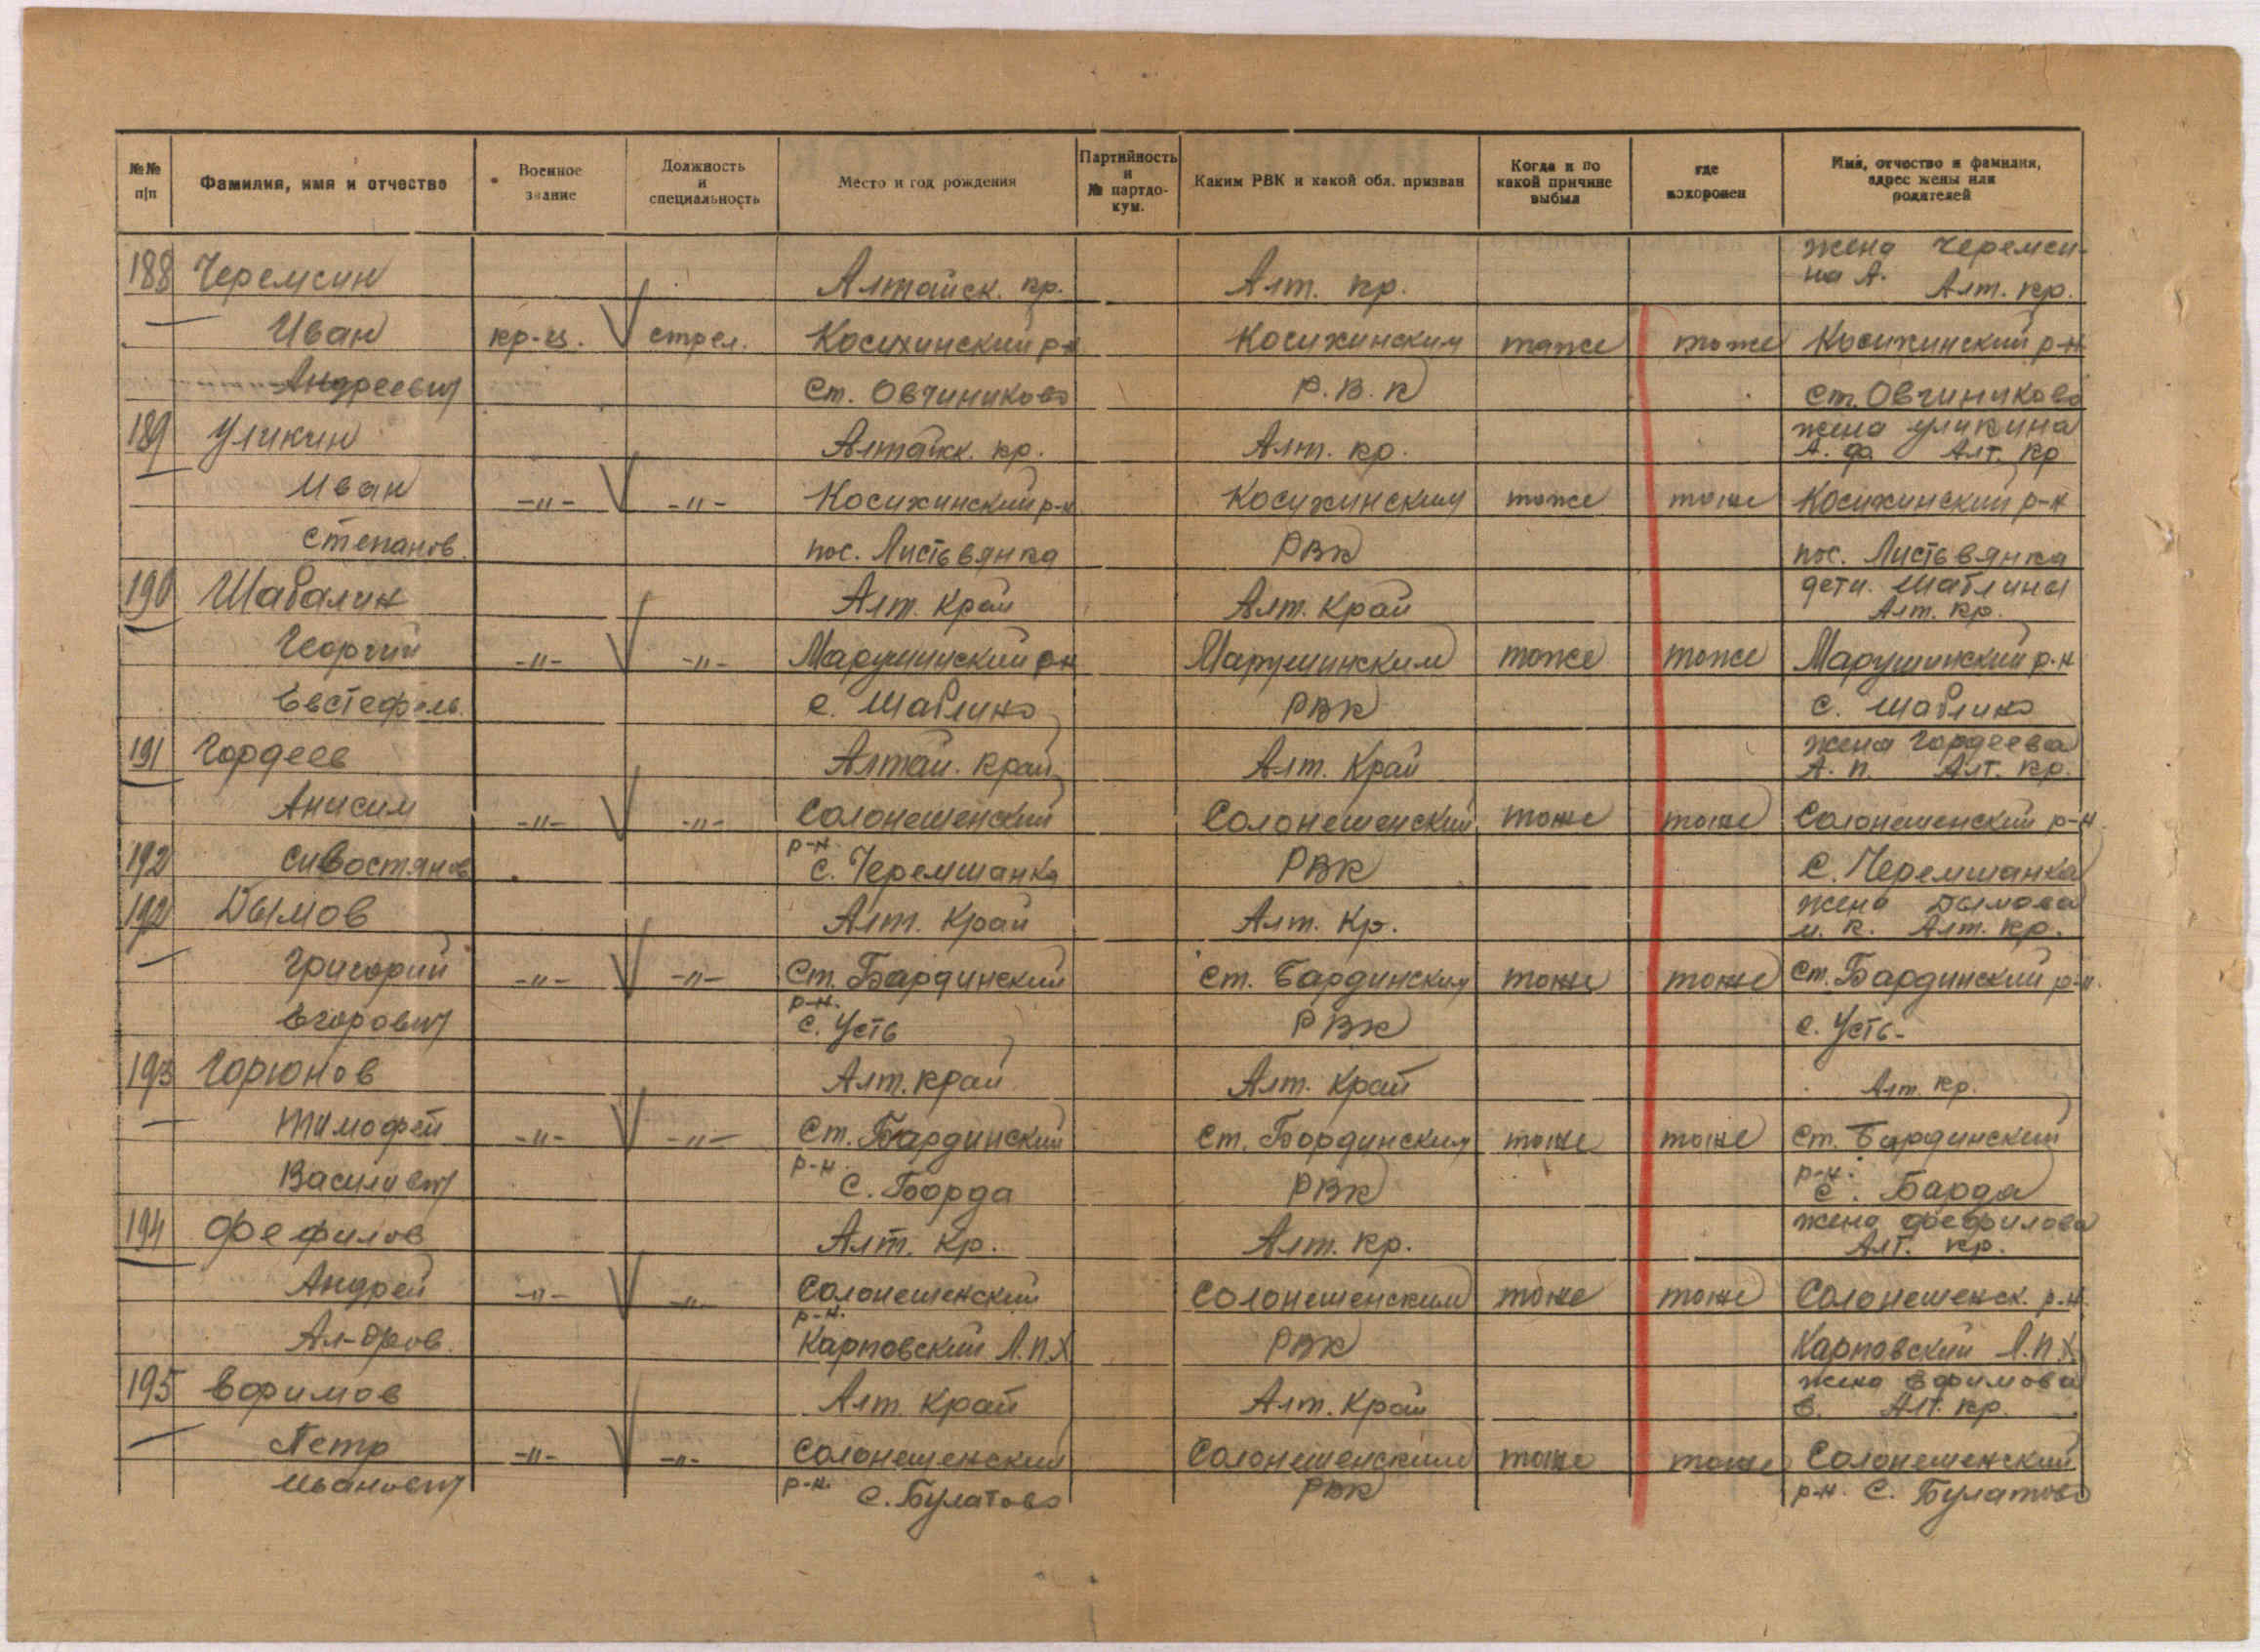 №№ п/п
Фамилия, имя и отчество
Военное звание
Должность и специальность
Место и год рождения
Партийность и № партдокум.
Каким РВК и какой обл. призван
Когда и по какой причине выбыл
где похоронен
Имя, отчество и фамилия, адрес жены или родителей
жена Черемси-
188 Черемсин Алтайск. кр. Алт. кр. на А. Алт. кр.
Иван кр-ц. стрел. Косихинский р-н Косихинским тоже тоже Косихинский р-н
Андреевич ст. Овчиниково Р.В.К ст. Овчиниково
жена Уликина
189 Уликин Алтайск. кр. Алт. кр. А. ф Алт. кр
Иван -"- -"- Косихинский р-н Косихинским тоже тоже Косихинский р-н
Степанов. пос. Листьвянка РВК пос. Листьвянка
дети. Шаблины
190 Шабалин Алт. край Алт. край Алт. кр.
Георгий -"- -"- Марушинский р-н Марушинским тоже тоже Марушинский р-н
Евстефель. с. Шаблино РВК с. Шаблино
жена Гордеева
191 Гордеев Алтай. край Алт. край А. П. Алт. кр.
Анисим -"- -"- Солонешенский Солонешенский тоже тоже Солонешенский р-н
р-н
192 Сивостянов с. Черемшанка РВК с. Черемшанка
жена Дымова
192 Дымов Алт. край Алт. кр. М. К. Алт. кр.
Григорий -"- -"- Ст. Бардинский Ст. Бардинским тоже тоже Ст. Бардинский р-н.
р-н.
Егорович с. Усть РВК с. Усть-
193 Горюнов Алт. край Алт. край Алт. кр.
Тимофей -"- -"- Ст. Бардинский Ст. Бординским тоже тоже Ст. Бардинский
р-н р-н.
Василевич с. Борда РВК с. Барда
жена Фефилова
194 Фефилов Алт. кр. Алт. кр. Алт. кр.
Андрей -"- -"- Солонешенский Солонешенским тоже тоже Солонешенск. р-н.
р-н.
Ал-дров. Карповский Л.П.Х РВК Карповский Л.П.Х
жена Ефимова
195 Ефимов Алт. край Алт. край Е. Алт. кр.
Петр -"- -"- Солонешенский Солонешенским тоже тоже Солонешенский
Иванович р-н. с. Булатово РВК р-н. с. Булатово